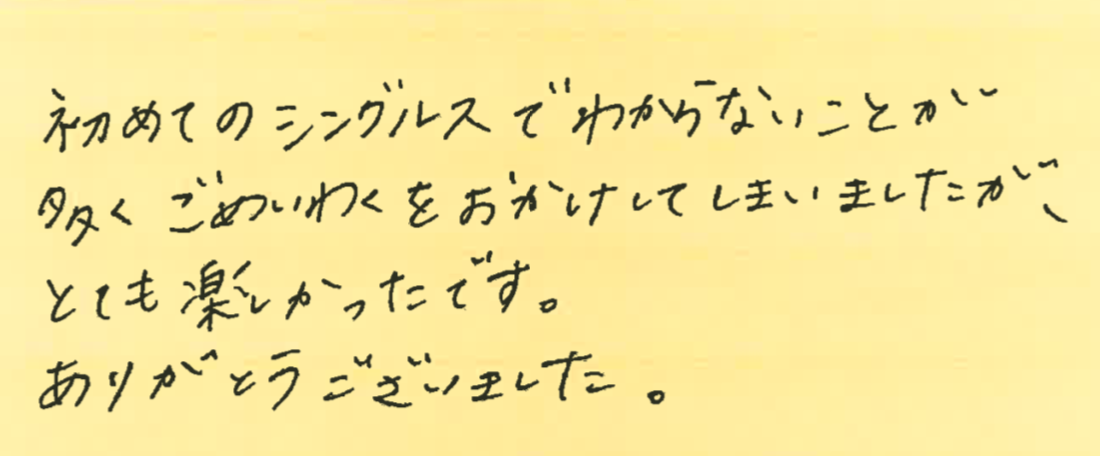 初めてのシングルスでわからないことが
多くごめいわくをおかけしてしまいましたが、
とても楽しかったです。
ありがとうございました。